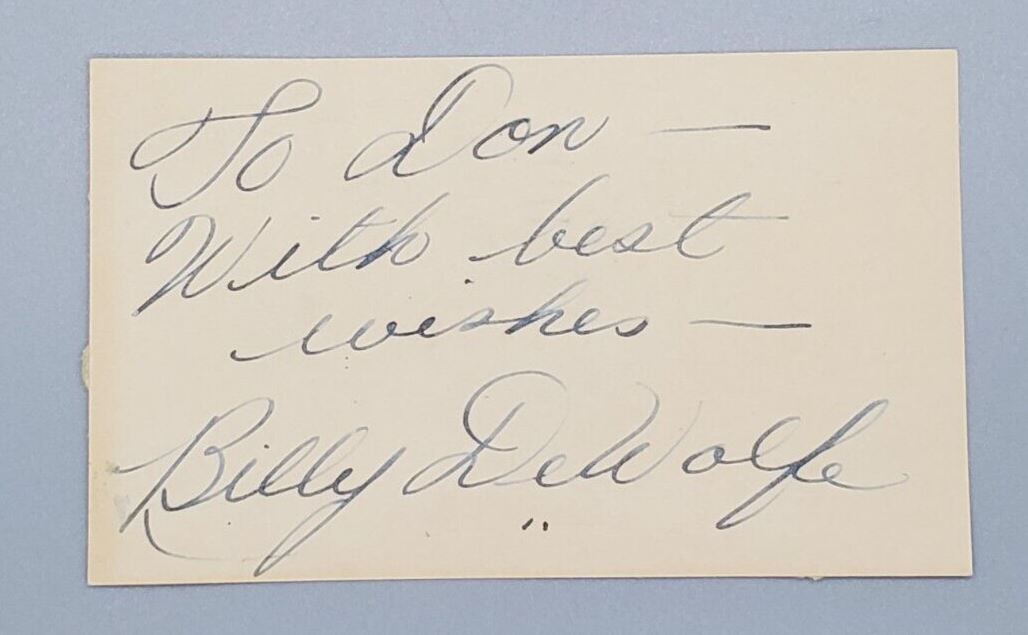 To Don —
With best
wishes —
Billy DeWolfe